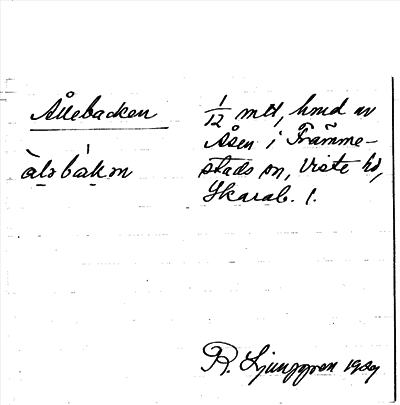 Ållebacken
àlə bákən
1/12 mtl, hmd av
Åsen i Främme-
stads sn, Viste hd,
Skarab. l.
R. Ljunggren 1929